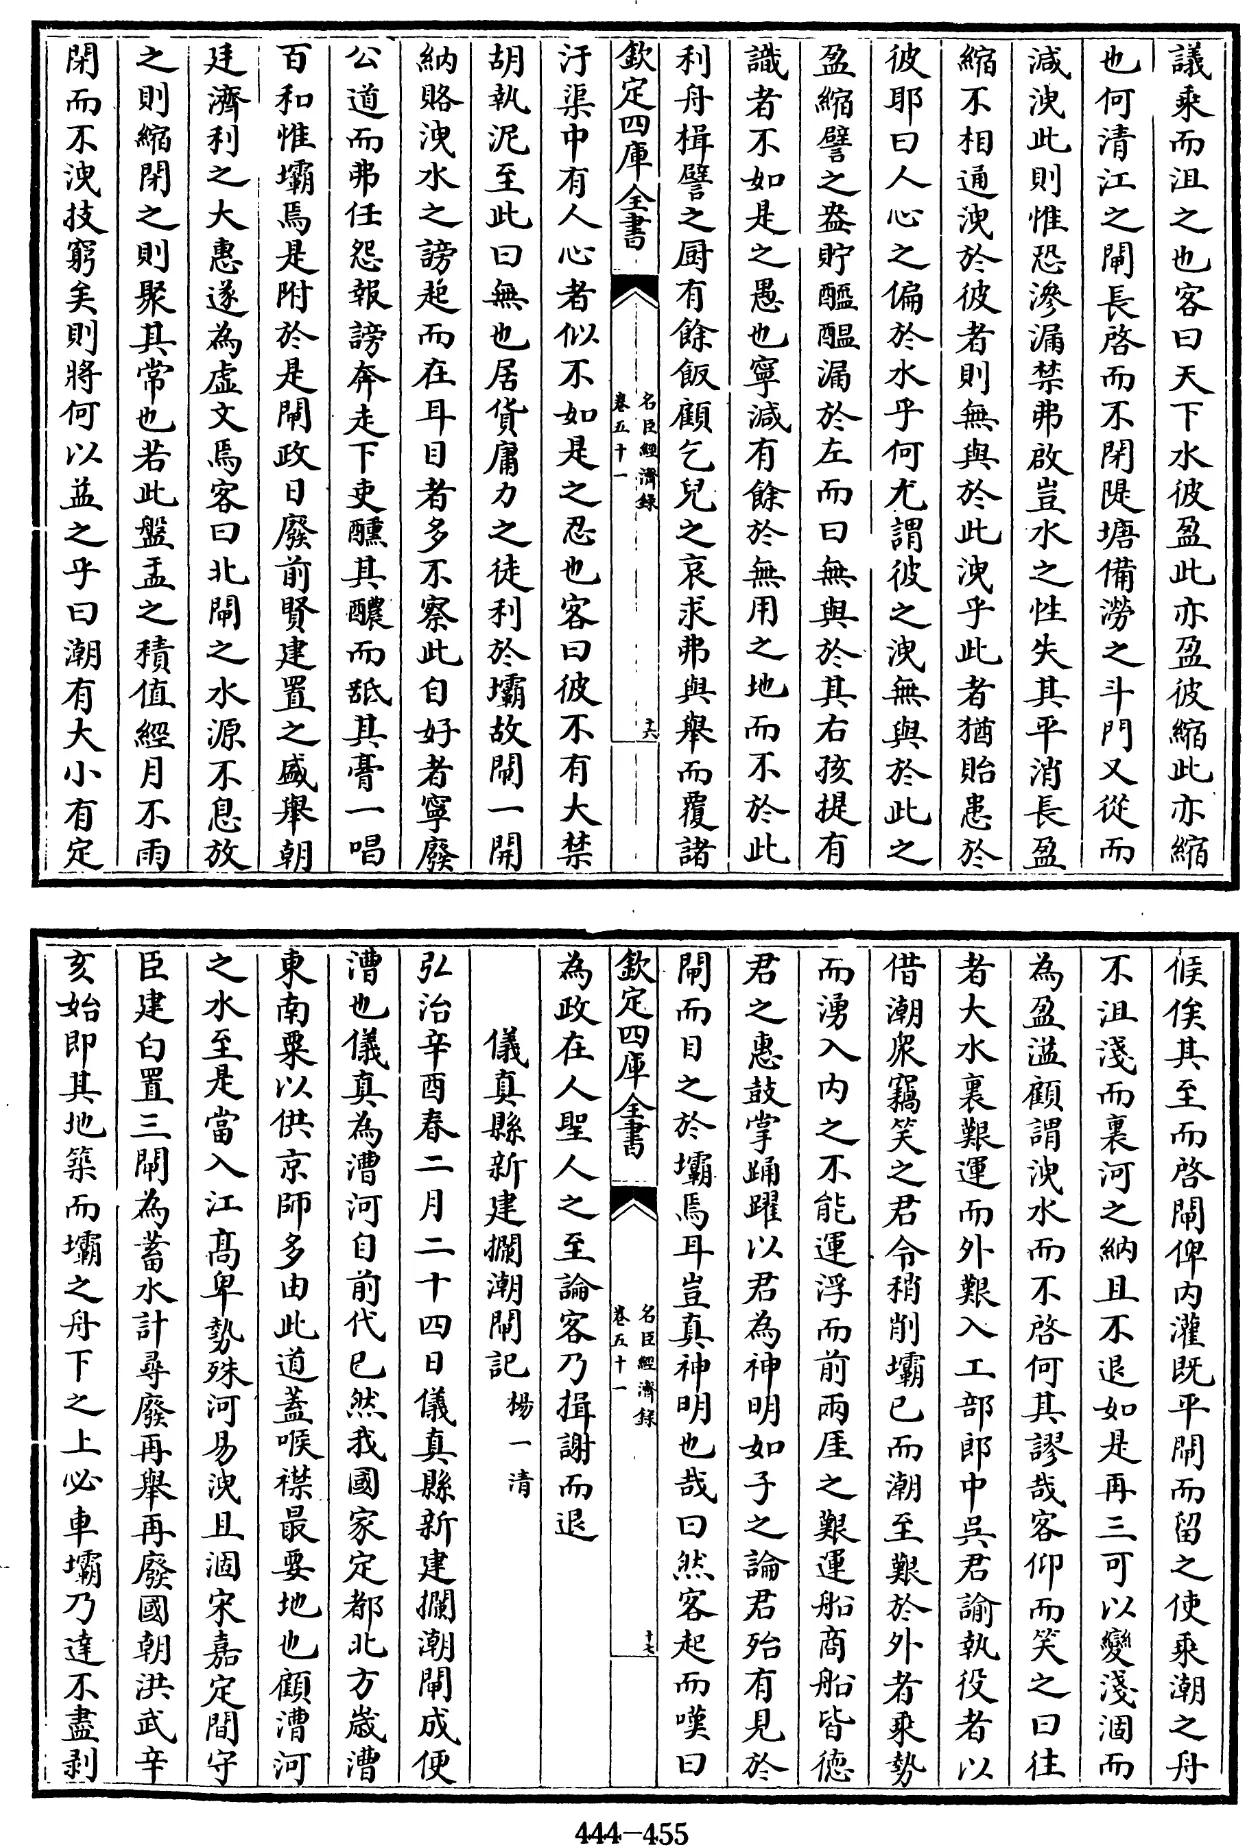 議乘而沮之也客曰天下水彼盈此亦盈彼縮此亦縮
也何清江之閘長啓而不閉隄塘備澇之斗門又從而
減洩此則惟恐滲漏禁弗啟豈水之性失其平消長盈
縮不相通洩於彼者則無與於此洩乎此者猶貽患於
彼耶曰人心之偏於水乎何尤謂彼之洩無與於此之
盈縮譬之盎貯醯醯漏於左而曰無與於其右孩提有
識者不如是之愚也寧減有餘於無用之地而不於此
利舟楫譬之厨有餘飯顧乞兒之哀求弗與舉而覆諸
欽定四庫全書
名臣經濟錄
卷五十一
十六
汙渠中有人心者似不如是之忍也客曰彼不有大禁
胡執泥至此曰無也居貨庸力之徒利於壩故閘一開
納賂洩水之謗起而在耳目者多不察此自好者寧廢
公道而弗任怨報謗奔走下吏醺其醲而舐其膏一唱
百和惟壩焉是附於是閘政日廢前賢建置之盛舉朝
廷濟利之大惠遂為虛文焉客曰北閘之水源不息放
之則縮閉之則聚其常也若此盤盂之積值經月不雨
閉而不洩技窮矣則將何以益之乎曰潮有大小有定
候俟其至而啓閘俾内灌既平閘而留之使乘潮之舟
不沮淺而裏河之納且不退如是再三可以變淺涸而
為盈溢顧謂洩水而不啓何其謬哉客仰而笑之曰往
者大水裏艱運而外艱入工部郎中吳君諭執役者以
借潮衆竊笑之君令稍削壩已而潮至艱於外者乘勢
而湧入内之不能運浮而前兩厓之艱運船商船皆德
君之惠鼓掌踊躍以君為神明如子之論君殆有見於
閘而目之於壩焉耳豈真神明也哉曰然客起而嘆曰
欽定四庫全書
名臣經濟錄
卷五十一
十七
為政在人聖人之至論客乃揖謝而退
儀真縣新建攔潮閘記 楊一清
弘治辛酉春二月二十四日儀真縣新建攔潮閘成便
漕也儀真為漕河自前代已然我國家定都北方歲漕
東南粟以供京師多由此道蓋喉襟最要地也顧漕河
之水至是當入江髙卑勢殊河易洩且涸宋嘉定間守
臣建白置三閘為蓄水計尋廢再舉再廢國朝洪武辛
亥始即其地築而壩之舟下之上必車壩乃達不盡剥
444-455